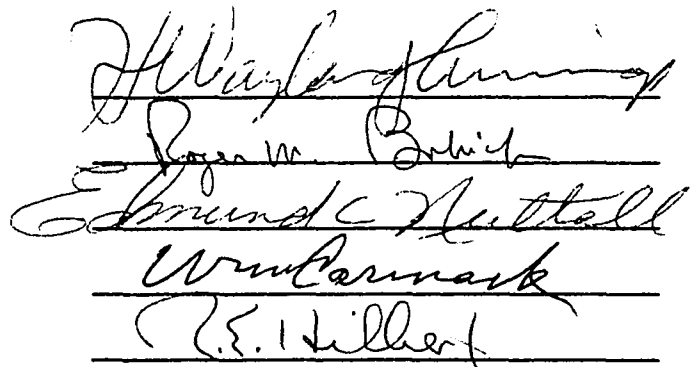 H Wayland Cummings
Roger M.
Edmund C Nuttall
Wm Carmack
R.E. Hilbert